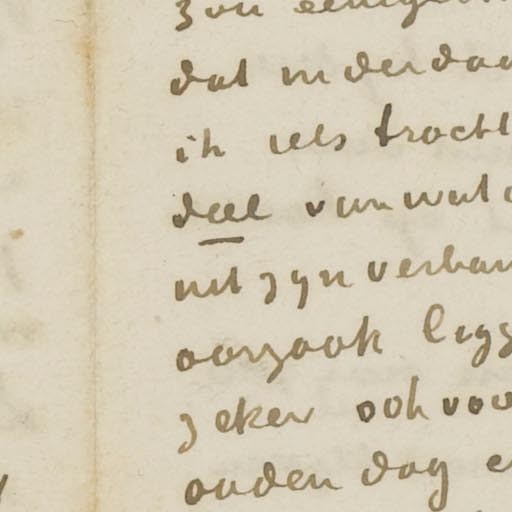 zou eenig
dat inderdaa
ik iets tracht
deel van wat
uit zyn verban
oorzaak ligg
zeker ook voo
ouden dag e